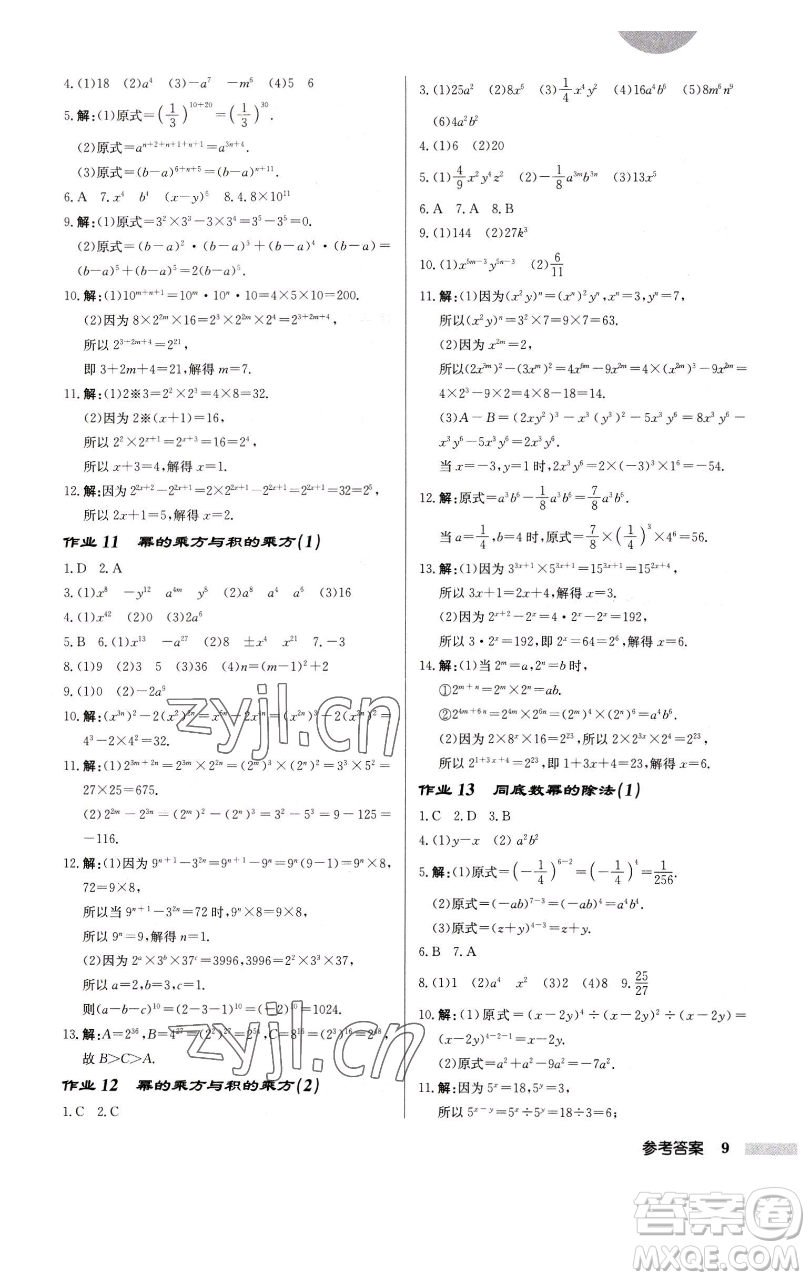 4.(1)18　(2)a⁴　(3)−a⁷　−m⁶　(4)5　6
5.解:(1)原式=(1/3)¹⁰⁺²⁰=(1/3)³⁰.
(2)原式=aⁿ⁺²⁺ⁿ⁺¹⁺ⁿ⁺¹=a³ⁿ⁺⁴.
(3)原式=(b−a)⁶⁺ⁿ⁺⁵=(b−a)ⁿ⁺¹¹.
6.A　7.x⁴　b⁴　(x−y)⁶　8.4.8×10¹¹
9.解:(1)原式=3²×3³−3×3⁴=3⁵−3⁵=0.
(2)原式=(b−a)²·(b−a)³+(b−a)⁴·(b−a)=
(b−a)⁵+(b−a)⁵=2(b−a)⁵.
10.解:(1)10ᵐ⁺ⁿ⁺¹=10ᵐ·10ⁿ·10=4×5×10=200.
(2)因为 8×2²ᵐ×16=2³×2²ᵐ×2⁴=2³⁺²ᵐ⁺⁴,
所以 2³⁺²ᵐ⁺⁴=2²¹,
即 3+2m+4=21,解得 m=7.
11.解:(1)2※3=2²×2³=4×8=32.
(2)因为 2※(x+1)=16,
所以 2²×2ˣ⁺¹=2ˣ⁺³=16=2⁴,
所以 x+3=4,解得 x=1.
12.解:因为 2²ˣ⁺²−2²ˣ⁺¹=2×2²ˣ⁺¹−2²ˣ⁺¹=2²ˣ⁺¹=32=2⁵,
所以 2x+1=5,解得 x=2.
作业 11　幂的乘方与积的乘方(1)
1.D　2.A
3.(1)x⁸　−y¹²　a⁴ᵐ　y⁸　(2)a⁸　a⁴　a⁶　(3)16
4.(1)x⁴²　(2)0　(3)2a⁶
5.B　6.(1)x¹³　−a²⁷　(2)8　±x⁴　x²¹　7.−3
8.(1)9　(2)3　5　(3)36　(4)n=(m−1)²+2
9.(1)0　(2)−2a⁹
10.解:(x³ⁿ)²−2(x²)²ⁿ=x⁶ⁿ−2x⁴ⁿ=(x²ⁿ)³−2(x²ⁿ)²=
4³−2×4²=32.
11.解:(1)2³ᵐ⁺²ⁿ=2³ᵐ×2²ⁿ=(2ᵐ)³×(2ⁿ)²=3³×5²=
27×25=675.
(2)2²ᵐ−2³ⁿ=(2ᵐ)²−(2ⁿ)³=3²−5³=9−125=
−116.
12.解:(1)因为 9ⁿ⁺¹−3²ⁿ=9ⁿ⁺¹−9ⁿ=9ⁿ(9−1)=9ⁿ×8,
72=9×8,
所以当 9ⁿ⁺¹−3²ⁿ=72 时,9ⁿ×8=9×8,
所以 9ⁿ=9,解得 n=1.
(2)因为 2ᵃ×3ᵇ×37ᶜ=3996,3996=2²×3³×37,
所以 a=2,b=3,c=1.
则(a−b−c)¹⁰=(2−3−1)¹⁰=(−2)¹⁰=1024.
13.解:A=2³⁶,B=4²⁷=(2²)²⁷=2⁵⁴,C=8¹⁶=(2³)¹⁶=2⁴⁸,
故 B>C>A.
作业 12　幂的乘方与积的乘方(2)
1.C　2.C
3.(1)25a²　(2)8x⁵　(3)1/4 x⁴y²　(4)16a⁴b⁴　(5)8m⁶n⁹
(6)4a²b²
4.(1)6　(2)20
5.(1)4/9 x²y⁴z²　(2)−1/8 a³ᵐb³ⁿ　(3)13x⁵
6.A　7.A　8.B
9.(1)144　(2)27k³
10.(1)x⁵ᵐ⁻³y⁵ⁿ⁻³　(2)6/11
11.解:(1)因为(x²y)ⁿ=(xⁿ)²yⁿ,xⁿ=3,yⁿ=7,
所以(x²y)ⁿ=3²×7=9×7=63.
(2)因为 x²ᵐ=2,
所以(2x³ᵐ)²−(3xᵐ)²=4x⁶ᵐ−9x²ᵐ=4×(x²ᵐ)³−9x²ᵐ=
4×2³−9×2=4×8−18=14.
(3)A−B=(2xy²)³−x³(y³)²−5x³y⁶=8x³y⁶−
x³y⁶−5x³y⁶=2x³y⁶.
当 x=−3,y=1 时,2x³y⁶=2×(−3)³×1⁶=−54.
12.解:原式=a³b⁶−1/8 a³b⁶=7/8 a³b⁶.
当 a=1/4,b=4 时,原式=7/8×(1/4)³×4⁶=56.
13.解:(1)因为 3³ˣ⁺¹×5³ˣ⁺¹=15³ˣ⁺¹=15²ˣ⁺⁴,
所以 3x+1=2x+4,解得 x=3.
(2)因为 2ˣ⁺²−2ˣ=4·2ˣ−2ˣ=192,
所以 3·2ˣ=192,即 2ˣ=64=2⁶,解得 x=6.
14.解:(1)当 2ᵐ=a,2ⁿ=b 时,
①2ᵐ⁺ⁿ=2ᵐ×2ⁿ=ab.
②2⁴ᵐ⁺⁶ⁿ=2⁴ᵐ×2⁶ⁿ=(2ᵐ)⁴×(2ⁿ)⁶=a⁴b⁶.
(2)因为 2×8ˣ×16=2²³,所以 2×(2³)ˣ×2⁴=2²³,
所以 2¹⁺³ˣ⁺⁴=2²³,即 1+3x+4=23,解得 x=6.
作业 13　同底数幂的除法(1)
1.C　2.D　3.B
4.(1)y−x　(2)a²b²
5.解:(1)原式=(−1/4)⁶⁻²=(−1/4)⁴=1/256.
(2)原式=(−ab)⁷⁻³=(−ab)⁴=a⁴b⁴.
(3)原式=(z+y)⁴⁻³=z+y.
6.B　7.A
8.(1)1　(2)a⁴　x²　(3)2　9.25/27
10.解:(1)原式=(x−2y)⁴÷(x−2y)²÷(x−2y)=
(x−2y)⁴⁻²⁻¹=x−2y.
(2)原式=a²+a²−9a²=−7a².
11.解:(1)因为 5ˣ=18,5ʸ=3,
所以 5ˣ⁻ʸ=5ˣ÷5ʸ=18÷3=6;
参考答案　9
zyjl.cn
zyjl.cn
答案卷
MXQE.COM